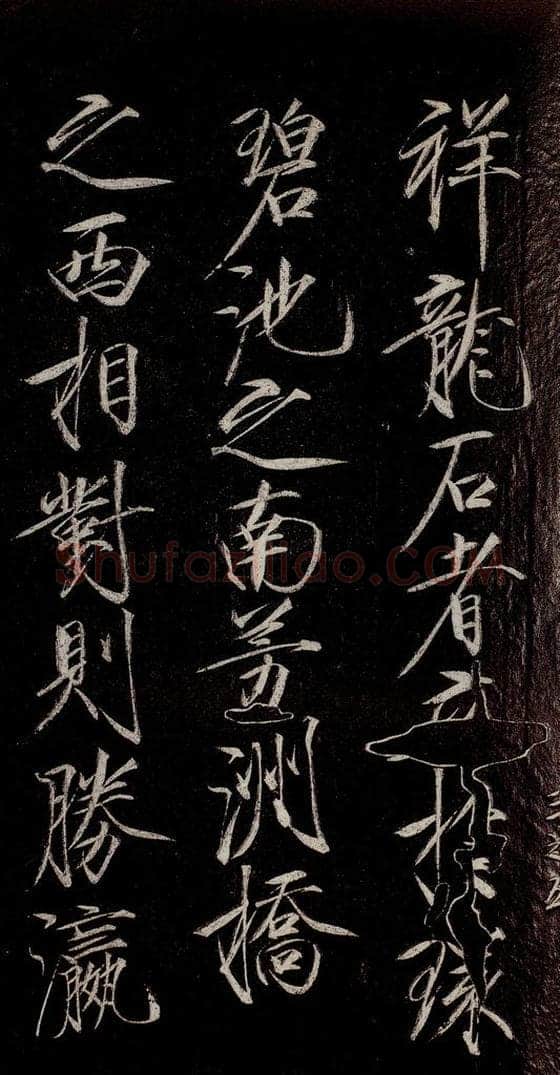 祥龍石者立於環
碧池之南芳洲橋
之西相對則勝瀛
Shufaziliao.COM